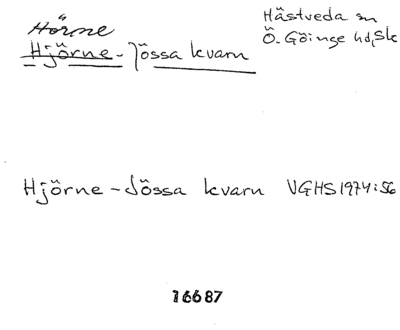 Hörne
Hjörne-Jössa kvarn
Hästveda sn
Ö. Göinge hd, Sk
Hjörne-Jössa kvarn VGHS 1974:56
16687